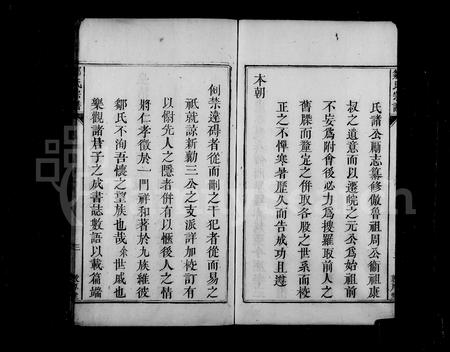 氏諸公勵志纂修倣魯祖周公衞祖康
叔之遺意而以遷皖之元公為始祖前
不妄為附會後必力為搜羅取前人之
舊牒而釐定之併取各股之世系而校
正之不憚寒暑歷久而告成功且遵
本朝
例禁違碍者從而刪之干犯者從而易之
祇就諒新勳三公之支派詳加校訂有
以俯先人之隱者併有以愜後人之情
將仁孝徵於一門祥和著於九族雖彼
鄒氏不洵吾懷之望族也哉余世戚也
樂觀諸君子之成書誌數語以載篇端